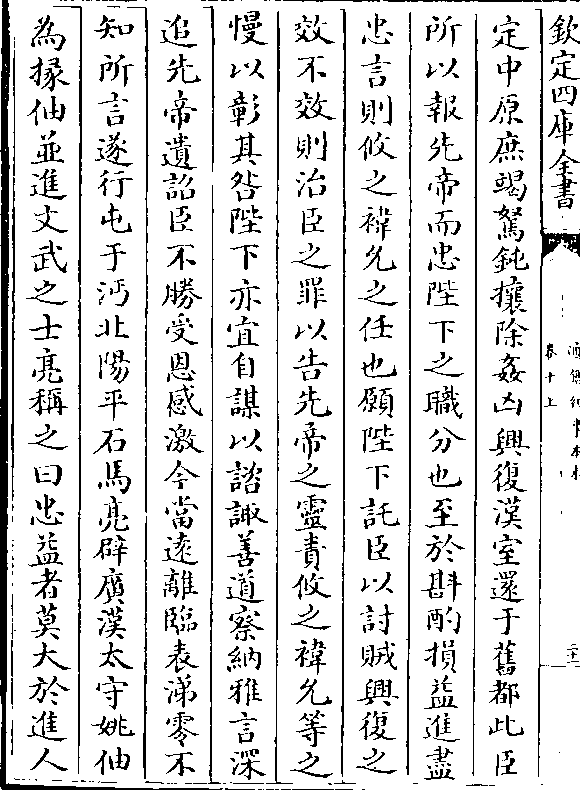 欽定四庫全書
通鑑紀事本末
卷十上
定中原庶竭駑鈍攘除姦凶興復漢室還于舊都此臣
所以報先帝而忠陛下之職分也至於斟酌損益進盡
忠言則攸之禕允之任也願陛下託臣以討賊興復之
效不效則治臣之罪以告先帝之靈責攸之禕允等之
慢以彰其咎陛下亦宜自謀以諮諏善道察納雅言深
追先帝遺詔臣不勝受恩感激今當遠離臨表涕零不
知所言遂行屯于沔北陽平石馬亮辟廣漢太守姚伷
為掾伷並進文武之士亮稱之曰忠益者莫大於進人